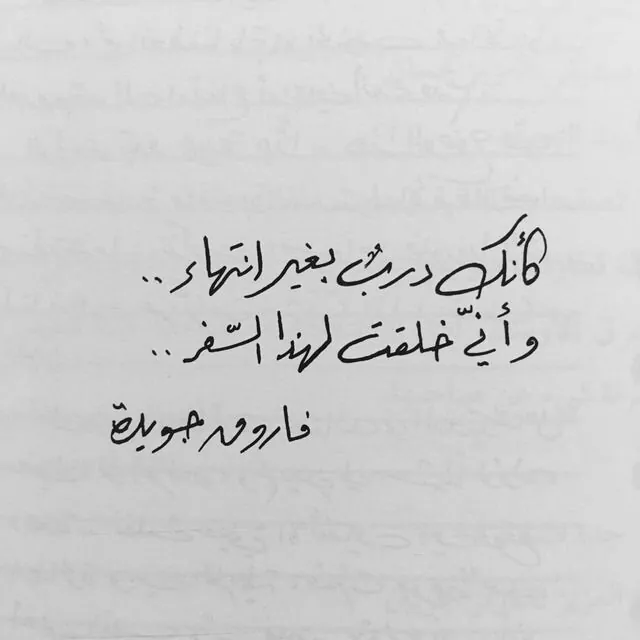 كأنك دربٌ بغير انتهاء ..
وأنيّ خلقت لهذا السّفر ..
فاروق جويدة